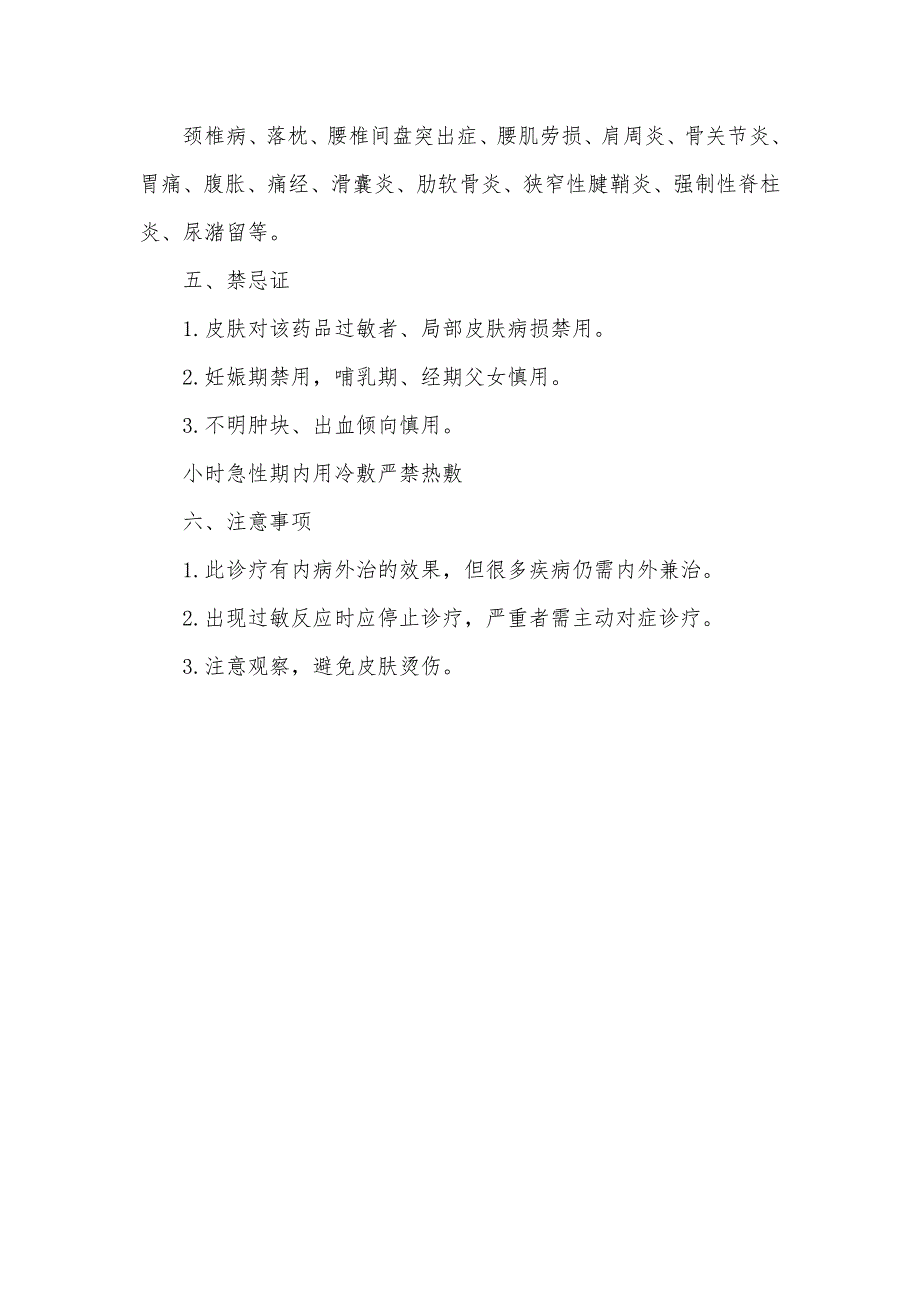 颈椎病、落枕、腰椎间盘突出症、腰肌劳损、肩周炎、骨关节炎、
胃痛、腹胀、痛经、滑囊炎、肋软骨炎、狭窄性腱鞘炎、强制性脊柱
炎、尿潴留等。
五、禁忌证
1.皮肤对该药品过敏者、局部皮肤病损禁用。
2.妊娠期禁用，哺乳期、经期父女慎用。
3.不明肿块、出血倾向慎用。
小时急性期内用冷敷严禁热敷
六、注意事项
1.此诊疗有内病外治的效果，但很多疾病仍需内外兼治。
2.出现过敏反应时应停止诊疗，严重者需主动对症诊疗。
3.注意观察，避免皮肤烫伤。